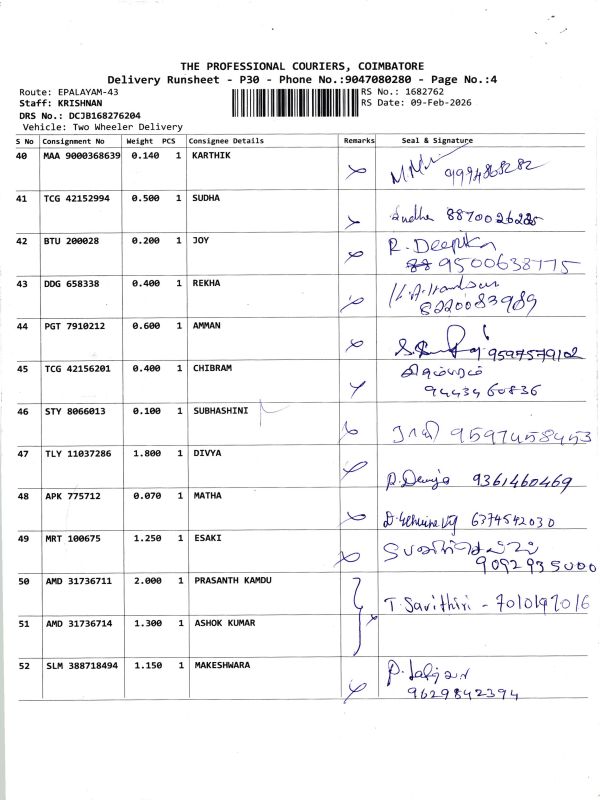 THE PROFESSIONAL COURIERS, COIMBATORE
Delivery Runsheet - P30 - Phone No.:9047080280 - Page No.:4
Route: EPALAYAM-43 RS No.: 1682762
Staff: KRISHNAN RS Date: 09-Feb-2026
DRS No.: DCJB168276204
Vehicle: Two Wheeler Delivery
S No Consignment No Weight PCS Consignee Details Remarks Seal & Signature
40 MAA 9000368639 0.140 1 KARTHIK
9994868282
41 TCG 42152994 0.500 1 SUDHA
Sudha
42 BTU 200028 0.200 1 JOY R. Deepika
9500638775
43 DDG 658338 0.400 1 REKHA
8220083989
44 PGT 7910212 0.600 1 AMMAN
9597579102
45 TCG 42156201 0.400 1 CHIBRAM
9443460836
46 STY 8066013 0.100 1 SUBHASHINI
9597458453
47 TLY 11037286 1.800 1 DIVYA
9361460469
48 APK 775712 0.070 1 MATHA
6374542030
49 MRT 100675 1.250 1 ESAKI
9092935000
50 AMD 31736711 2.000 1 PRASANTH KAMDU
T. Savithiri -
51 AMD 31736714 1.300 1 ASHOK KUMAR
52 SLM 388718494 1.150 1 MAKESHWARA
9629842394